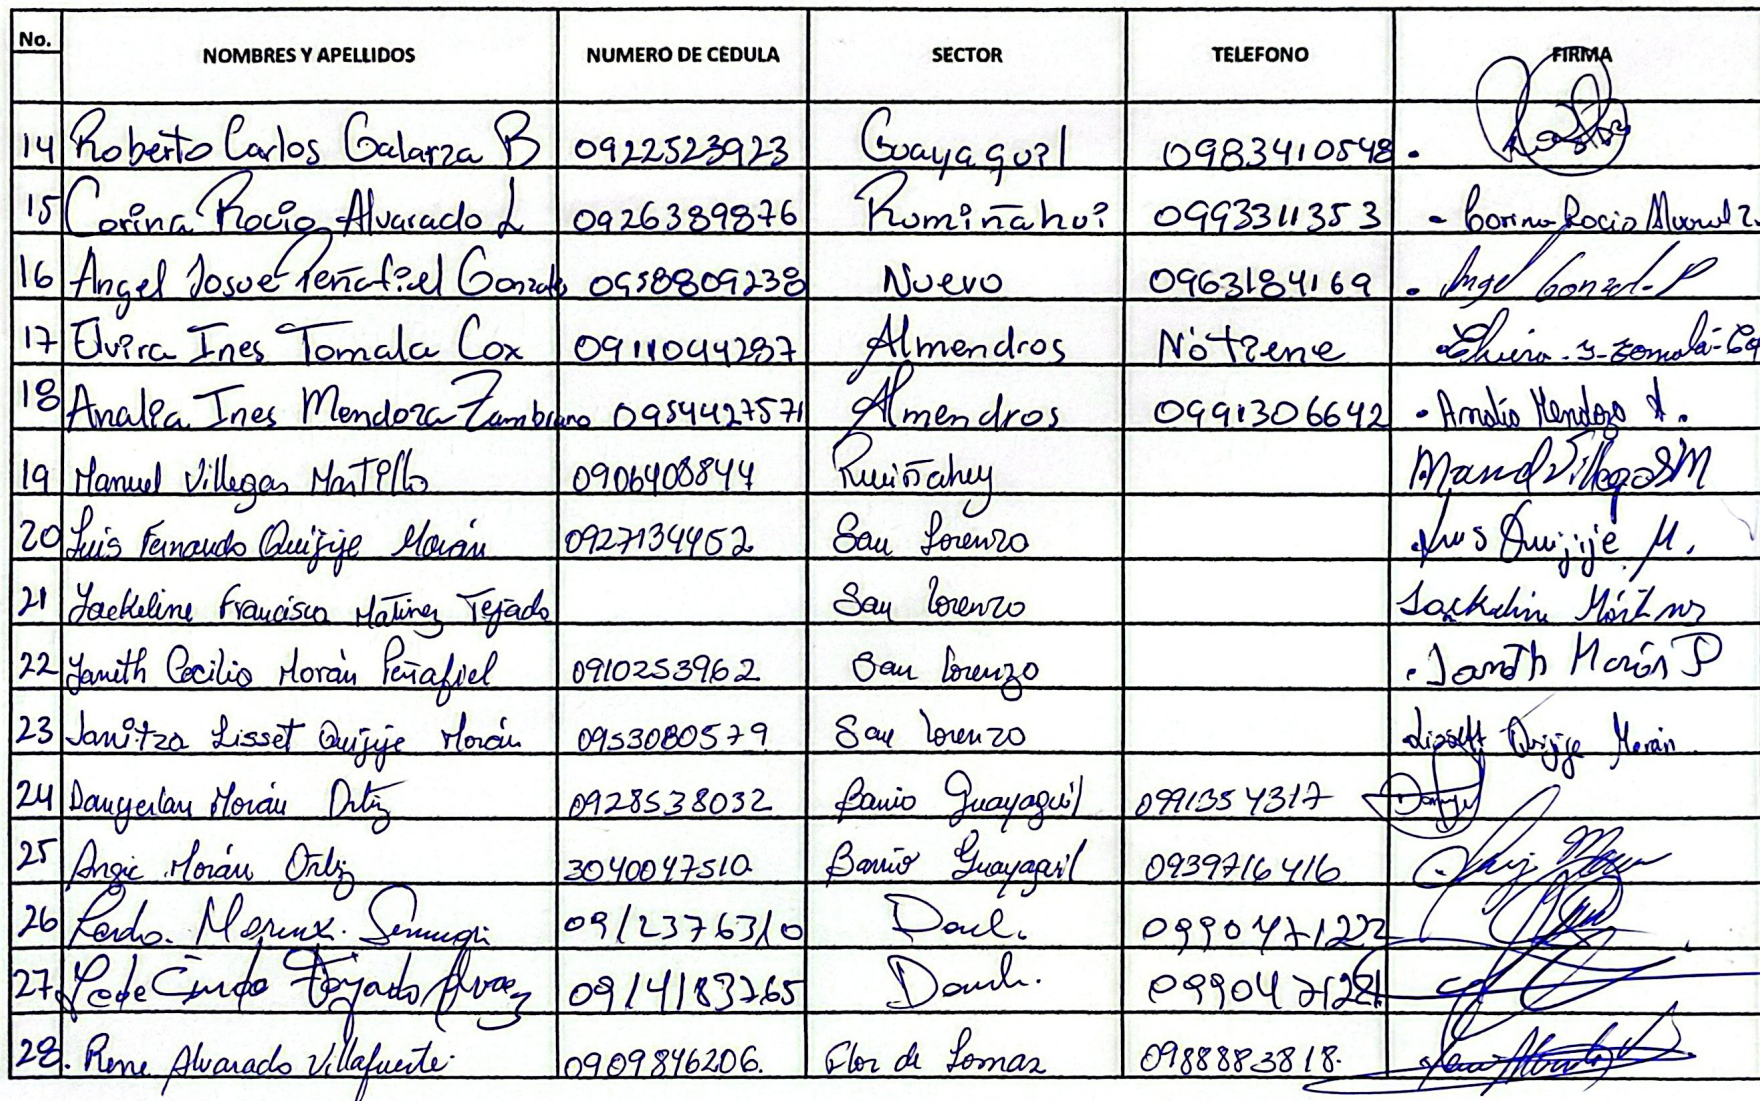 No. NOMBRES Y APELLIDOS NUMERO DE CEDULA SECTOR TELEFONO FIRMA
14 Roberto Carlos Galarza B 0922523923 Guayaquil 0983410548
15 Corina Rocio Alvarado L 0926389876 Rumiñahui 0993311353 Corina Rocio
16 Angel Josue Peñafiel Gonzalo 0958809238 Nuevo 0963184169 Angel
17 Elvira Ines Tomala Cox 0911044287 Almendros No tiene
18 Analia Ines Mendoza Zambrano 0954427571 Almendros 0991306642 Analia Mendoza
19 Manuel Villegas Martillo 0906408844 Ruiñahuy Manuel Villegas M
20 Luis Fernando Quijije Morán 0927134452 San Lorenzo Luis Quijije M.
21 Jackeline Francisca Matinez Tejado San Lorenzo
22 Janeth Cecilio Morán Peñafiel 0910253962 San Lorenzo Janeth Morán P
23 Janitza Lisset Quijije Morán 0953080579 San Lorenzo Lissett Quijije Morán
24 Dangerlan Morán Ortiz 0928538032 Barrio Guayaquil 0991354317
25 Angie Morán Ortiz 3040047510 Barrio Guayaquil 0939716416
26 0912376310 0990471222
27 Tejado 0914183265
28. Rene Alvarado Villafuerte. 0909846206. Flor de Lomas 0988883818.